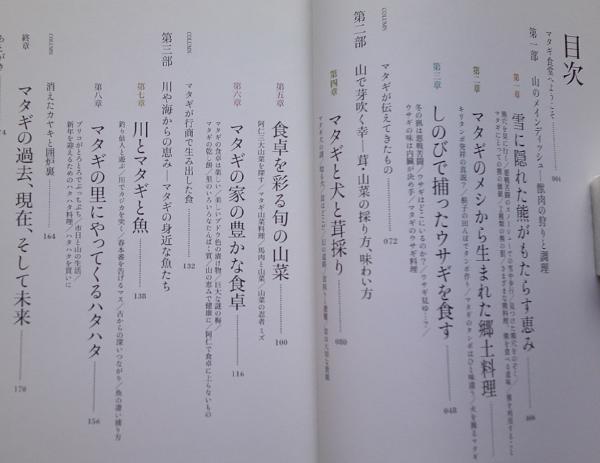 目次
マタギ食堂へようこそ
第一部　山のメインディッシュ―獣肉の狩りと調理
第一章　雪に隠れた熊がもたらす恵み
第二章　マタギのメシから生まれた郷土料理
キリタンポ発祥の真説?／根子の田んぼでタンポ作り／マタギのタンポはひと味違う／火を操るマタギ
第三章　しのびで捕ったウサギを食す　048
冬の猟は悪戦苦闘／ウサギはどこにいるのか?／ウサギ見ゆ…?／
ウサギの味は内臓が決め手／マタギのウサギ料理
COLUMN　マタギが伝えてきたもの　072
第二部　山で芽吹く幸―茸・山菜の採り方、味わい方
第四章　マタギと犬と茸採り　080
第五章　食卓を彩る旬の山菜　100
阿仁三大山菜を探す／マタギ山菜料理／馬肉と山菜／山菜の忍者ミズ
第六章　マタギの家の豊かな食卓　116
マタギの食卓は楽しい／美しいブドウ色の漬け物／巨大な謎の梅／
マタギの乾し餅／里のいろいろなたんぱく質／山の恵みで健康に／阿仁で食卓に上らないもの
COLUMN　マタギが行商で生み出した食　132
第三部　川や海からの恵み―マタギの身近な魚たち
第七章　川とマタギと魚　138
釣り仙人と遊ぶ／川でカジカを突く／春本番を告げるマス／古からの深いつながり／魚の凄い捕り方
第八章　マタギの里にやってくるハタハタ　156
ブリコがとろとろでぶっちぶち／市日と山の生活／
新年を迎えるためのハタハタ料理／ハタハタを買いに
COLUMN　消えたカヤキと囲炉裏　164
終章　マタギの過去、現在、そして未来　170
あとがき　174